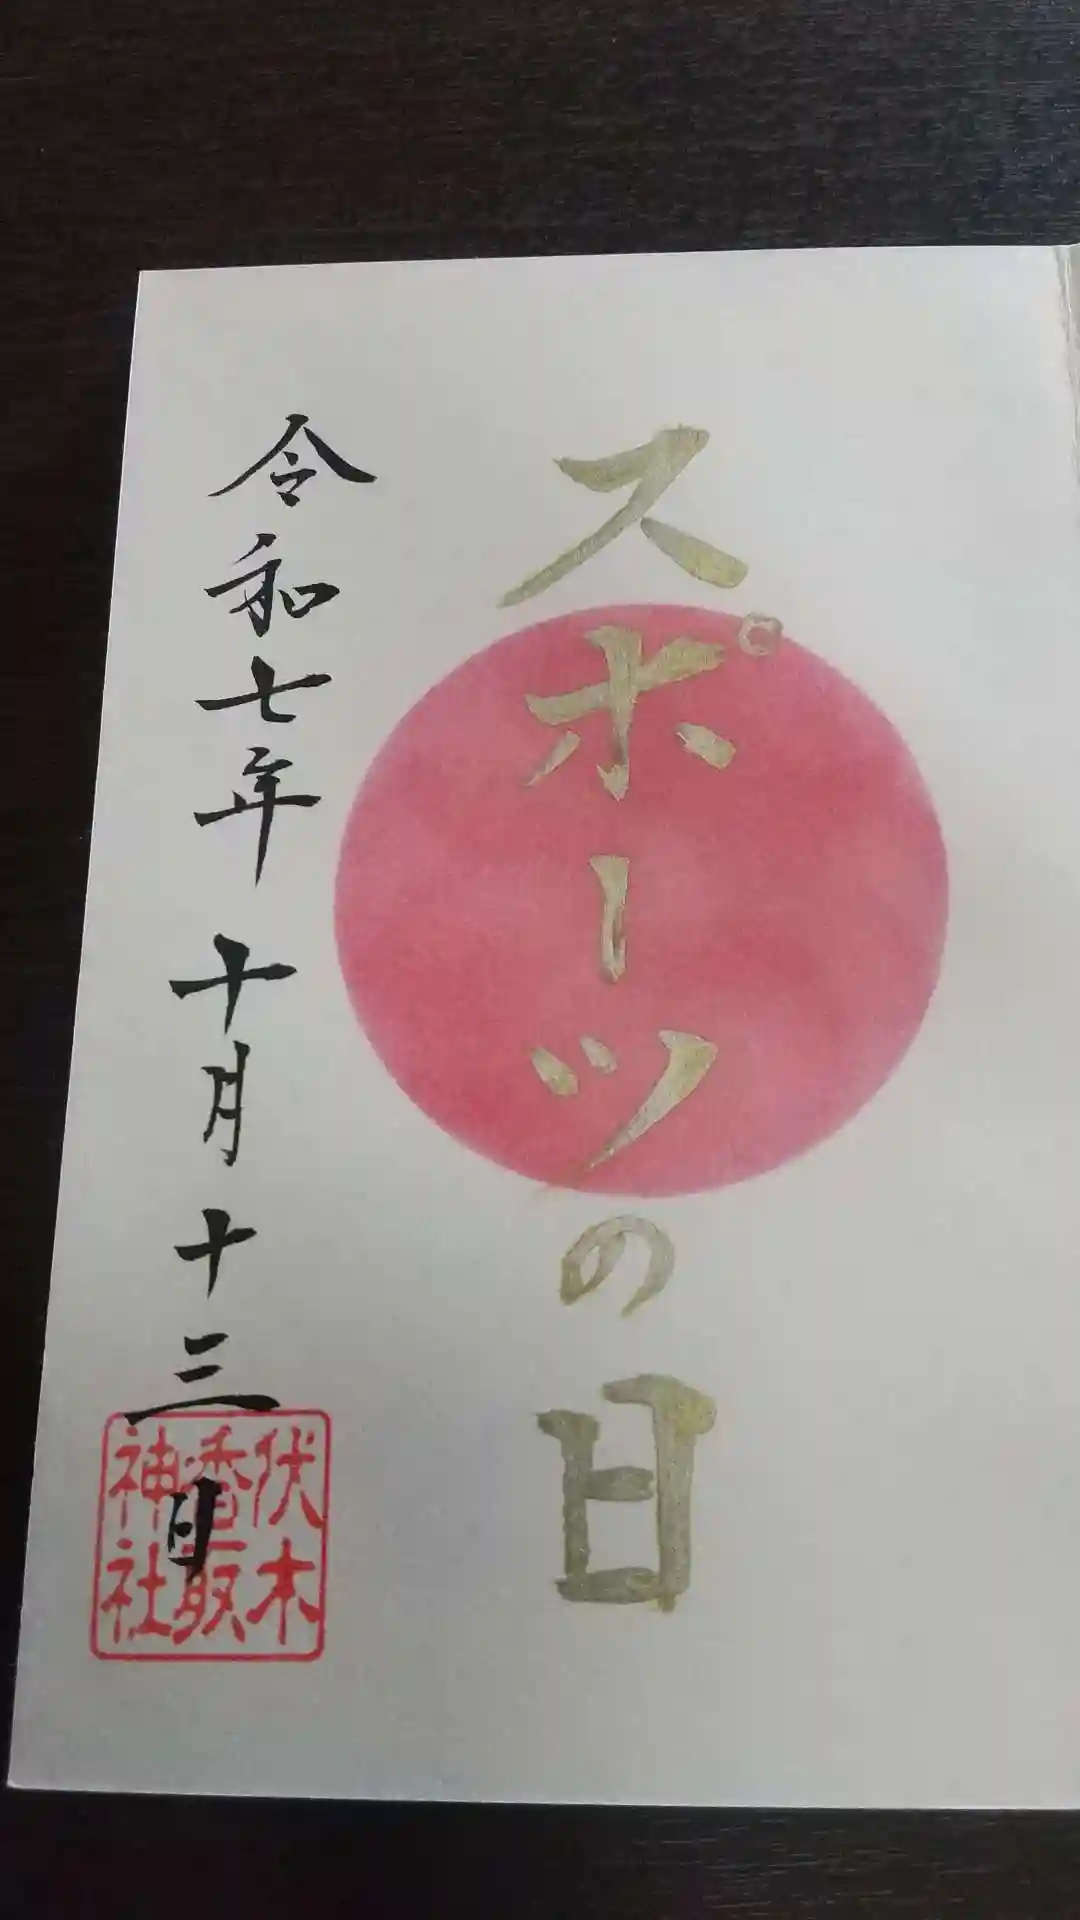 スポーツの日
令和七年 十月十三日
伏木
香取
神社